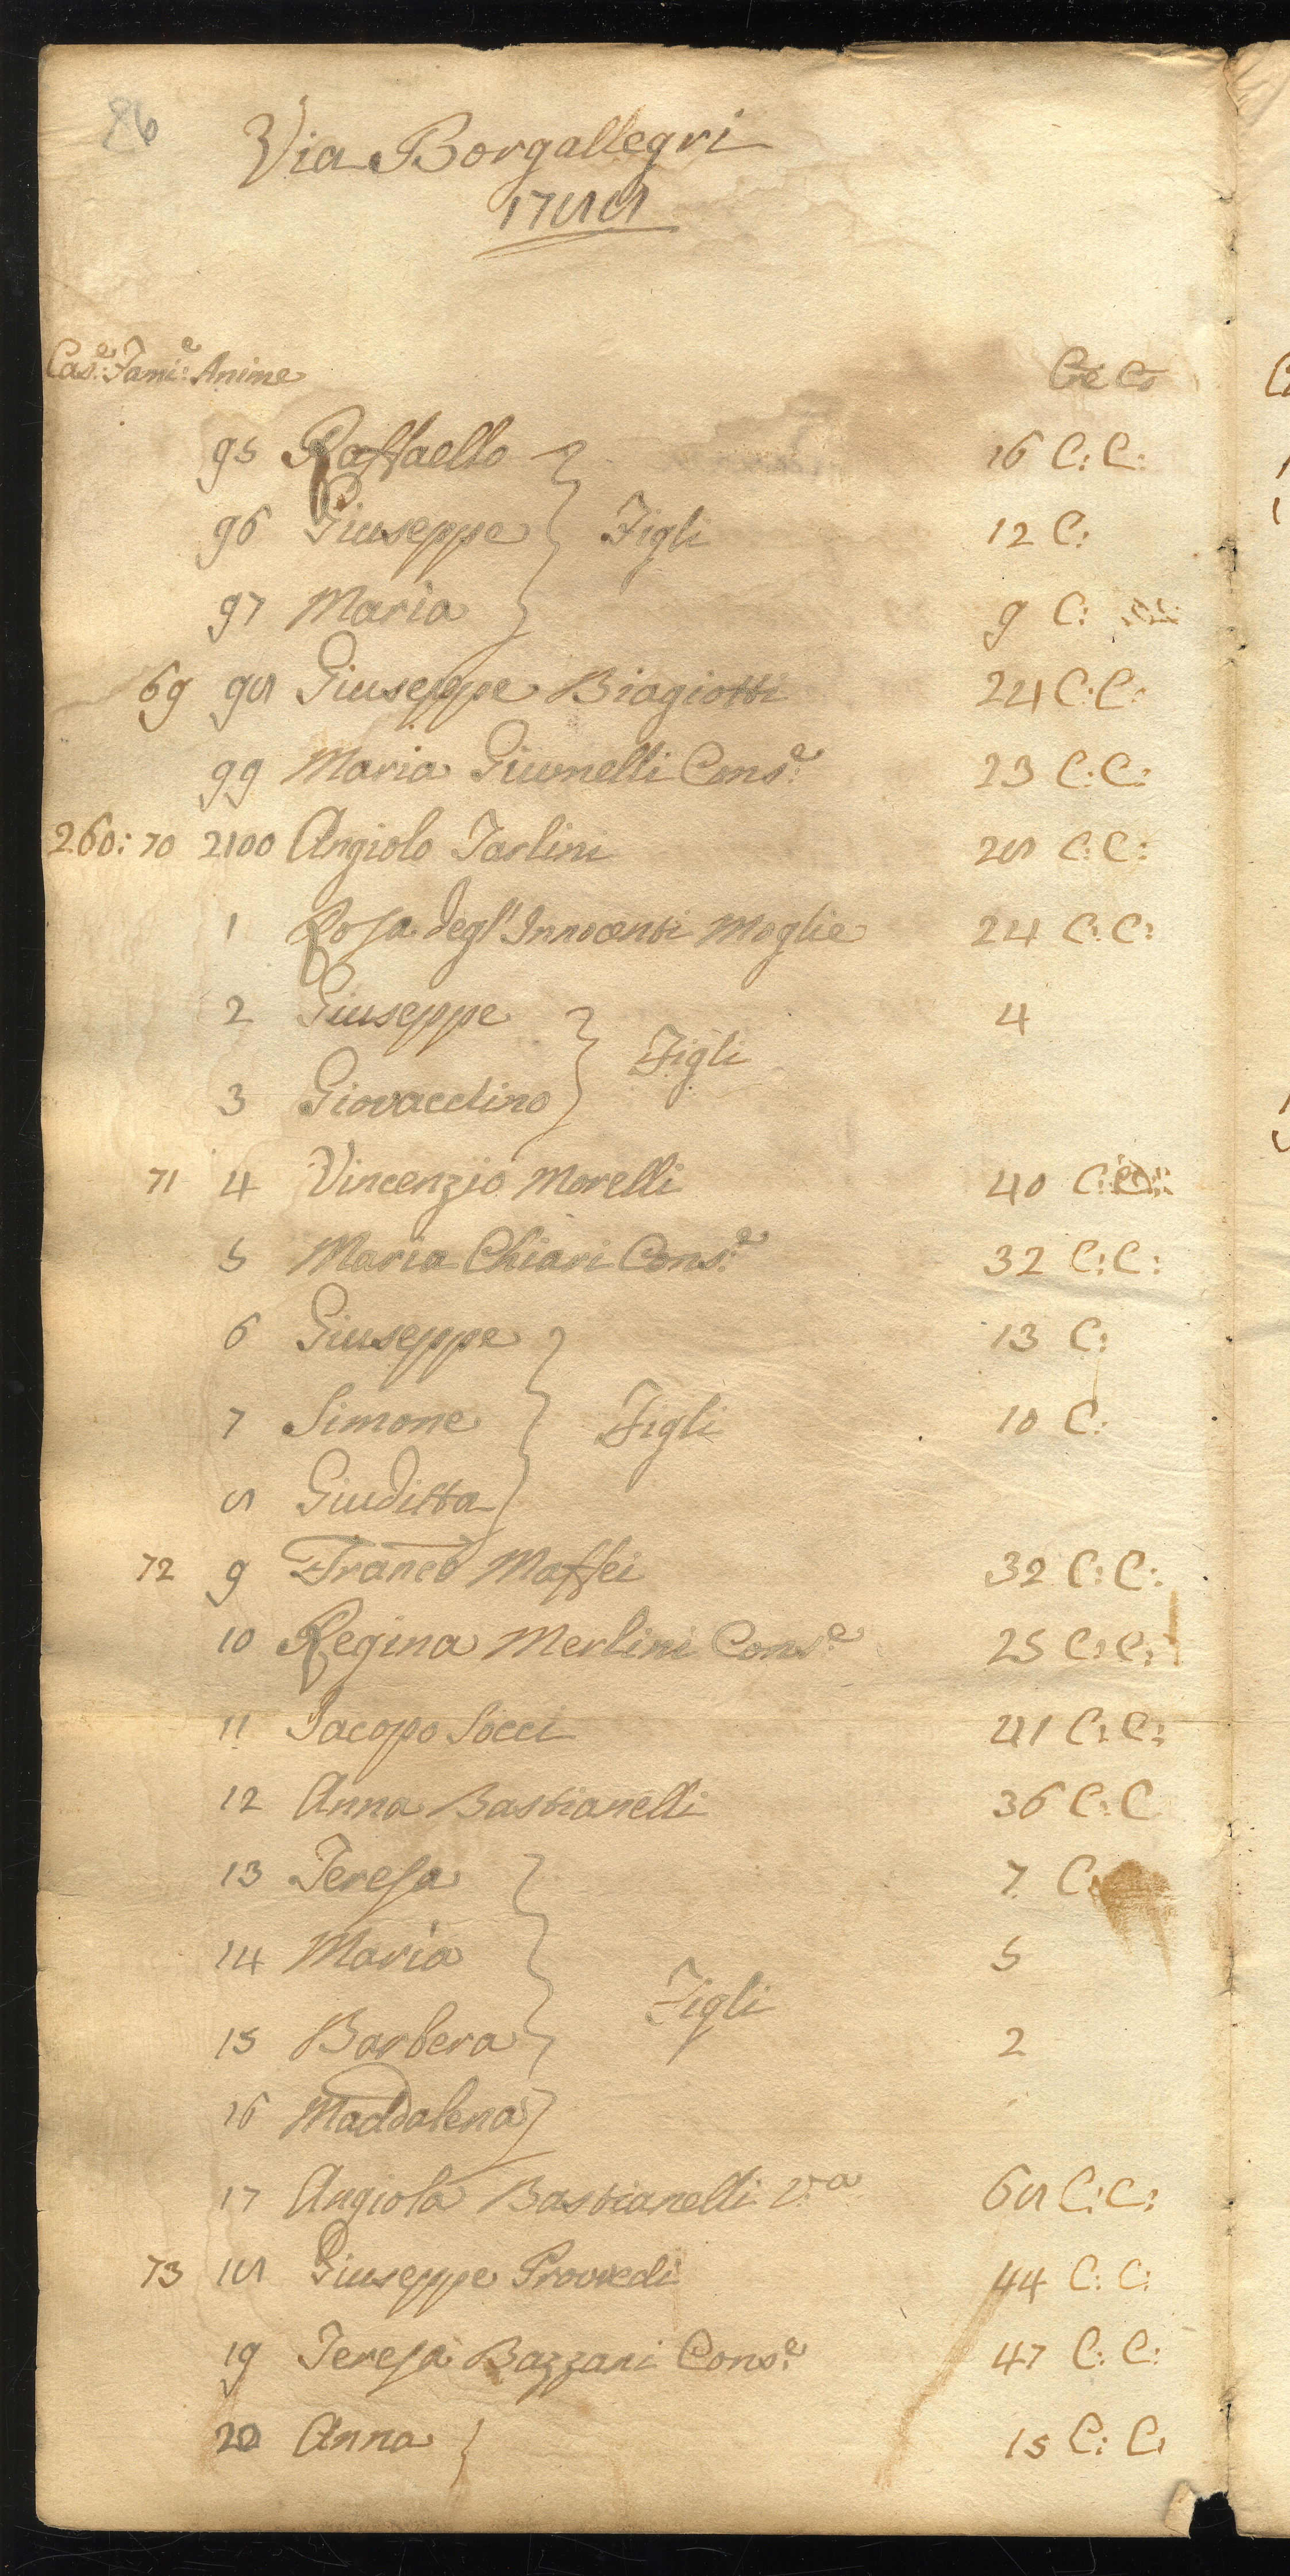 86
Via Borgallegri
1788
Cas.e Fami.e Anime Cre Co
95 Raffaello 16 C: C:
96 Giuseppe Figli 12 C:
97 Maria 9 C:
69 98 Giuseppe Biagiotti 24 C: C:
99 Maria Giunelli Cons.e 23 C: C:
260: 70 2100 Angiolo Tarlini 28 C: C:
1 Rosa degl'Innocenti Moglie 24 C: C:
2 Giuseppe 4
Figli
3 Giovacchino
71 4 Vincenzio Morelli 40 C:
5 Maria Chiari Cons.e 32 C: C:
6 Giuseppe 13 C:
7 Simone Figli 10 C:
8 Giuditta
72 9 Franco Maffei 32 C: C:
10 Regina Merlini Cons.e 25 C: C:
11 Jacopo Socci 41 C: C:
12 Anna Bastianelli 36 C: C
13 Teresa 7 C:
14 Maria 5
Figli
15 Barbera 2
16 Maddalena
17 Angiola Bastianelli V.a 68 C: C:
73 18 Giuseppe Provvedi 44 C: C:
19 Teresa Bazzani Cons.e 47 C: C:
20 Anna 15 C: C: